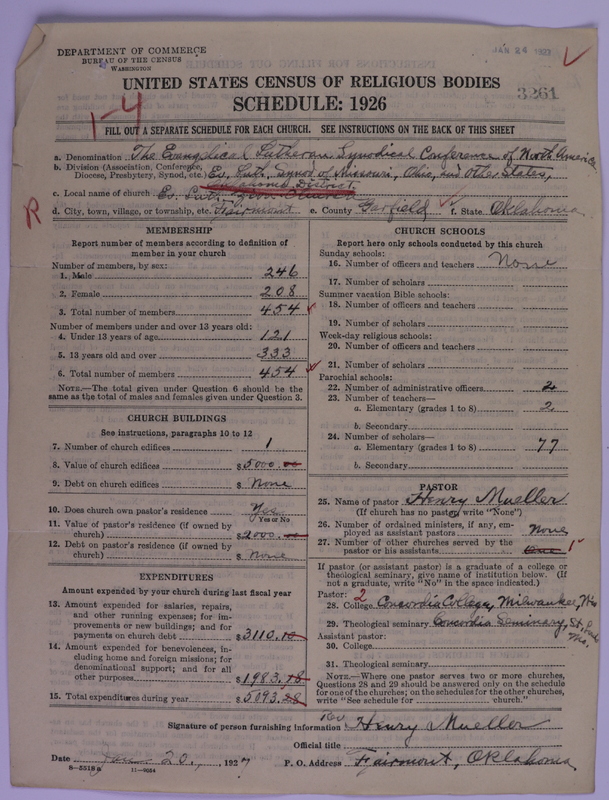 DEPARTMENT OF COMMERCE
BUREAU OF THE CENSUS
WASHINGTON
JAN 24 1927
UNITED STATES CENSUS OF RELIGIOUS BODIES
SCHEDULE: 1926
3261
1-4
FILL OUT A SEPARATE SCHEDULE FOR EACH CHURCH. SEE INSTRUCTIONS ON THE BACK OF THIS SHEET
a. Denomination The Evangelical Lutheran Synodical Conference of North America
b. Division (Association, Conference, Diocese, Presbytery, Synod, etc.) Ev. Luth. Synod of Missouri, Ohio, and Other States,
Oklahoma District.
c. Local name of church Ev. Luth. Zion Church
R
d. City, town, village, or township, etc. Fairmont e. County Garfield f. State Oklahoma
MEMBERSHIP
Report number of members according to definition of
member in your church
Number of members, by sex:
1. Male 246
2. Female 208
3. Total number of members 454
Number of members under and over 13 years old:
4. Under 13 years of age 121
5. 13 years old and over 333
6. Total number of members 454
NOTE.—The total given under Question 6 should be
same as the total of males and females given under Question 3.
CHURCH BUILDINGS
See instructions, paragraphs 10 to 12
7. Number of church edifices 1
8. Value of church edifices $5000.00
9. Debt on church edifices $ None
10. Does church own pastor's residence? Yes
Yes or No
11. Value of pastor's residence (if owned by
church) $2000.00
12. Debt on pastor's residence (if owned by
church) $ None
EXPENDITURES
Amount expended by your church during last fiscal year
13. Amount expended for salaries, repairs,
and other running expenses; for im-
provements or new buildings; and for
payments on church debt $3110.10
14. Amount expended for benevolences, in-
cluding home and foreign missions; for
denominational support; and for all
other purposes $1983.18
15. Total expenditures during year $5093.28
CHURCH SCHOOLS
Report here only schools conducted by this church
Sunday schools:
16. Number of officers and teachers None
17. Number of scholars
Summer vacation Bible schools:
18. Number of officers and teachers
19. Number of scholars
Week-day religious schools:
20. Number of officers and teachers
21. Number of scholars
Parochial schools:
22. Number of administrative officers 2
23. Number of teachers—
a. Elementary (grades 1 to 8) 2
b. Secondary
24. Number of scholars—
a. Elementary (grades 1 to 8) 77
b. Secondary
PASTOR
25. Name of pastor Henry Mueller
(If church has no pastor, write "None")
26. Number of ordained ministers, if any, em-
ployed as assistant pastors None
27. Number of other churches served by the
pastor or his assistants One 1
If pastor (or assistant pastor) is a graduate of a college or
theological seminary, give name of institution below. (If
not a graduate, write "No" in the space indicated.)
Pastor: 2
28. College Concordia College, Milwaukee, Wis
29. Theological seminary Concordia Seminary, St. Louis
Mo.
Assistant pastor:
30. College
31. Theological seminary
NOTE.—Where one pastor serves two or more churches,
Questions 28 and 29 should be answered only on the schedule
for one of the churches; on the schedules for the other churches,
write "See schedule for church."
Signature of person furnishing information Rev Henry Mueller
Official title
Date Jan. 20, 1927
P. O. Address Fairmont, Oklahoma
8—5518a 11—9684